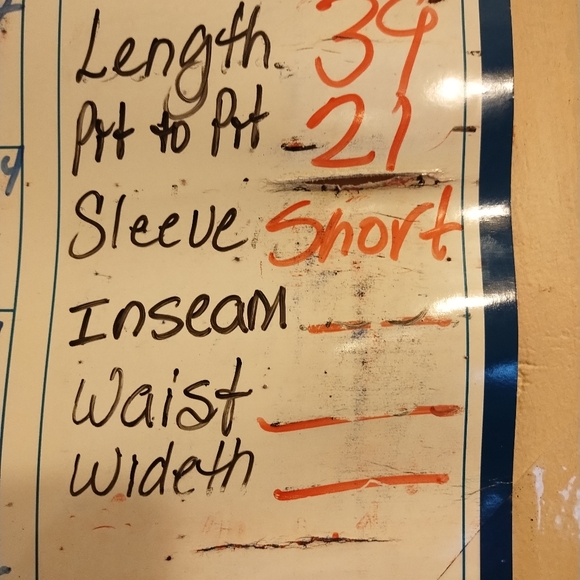 Length 39
Pit to Pit - 21
Sleeve Short
Inseam __
Waist _
Wideth _